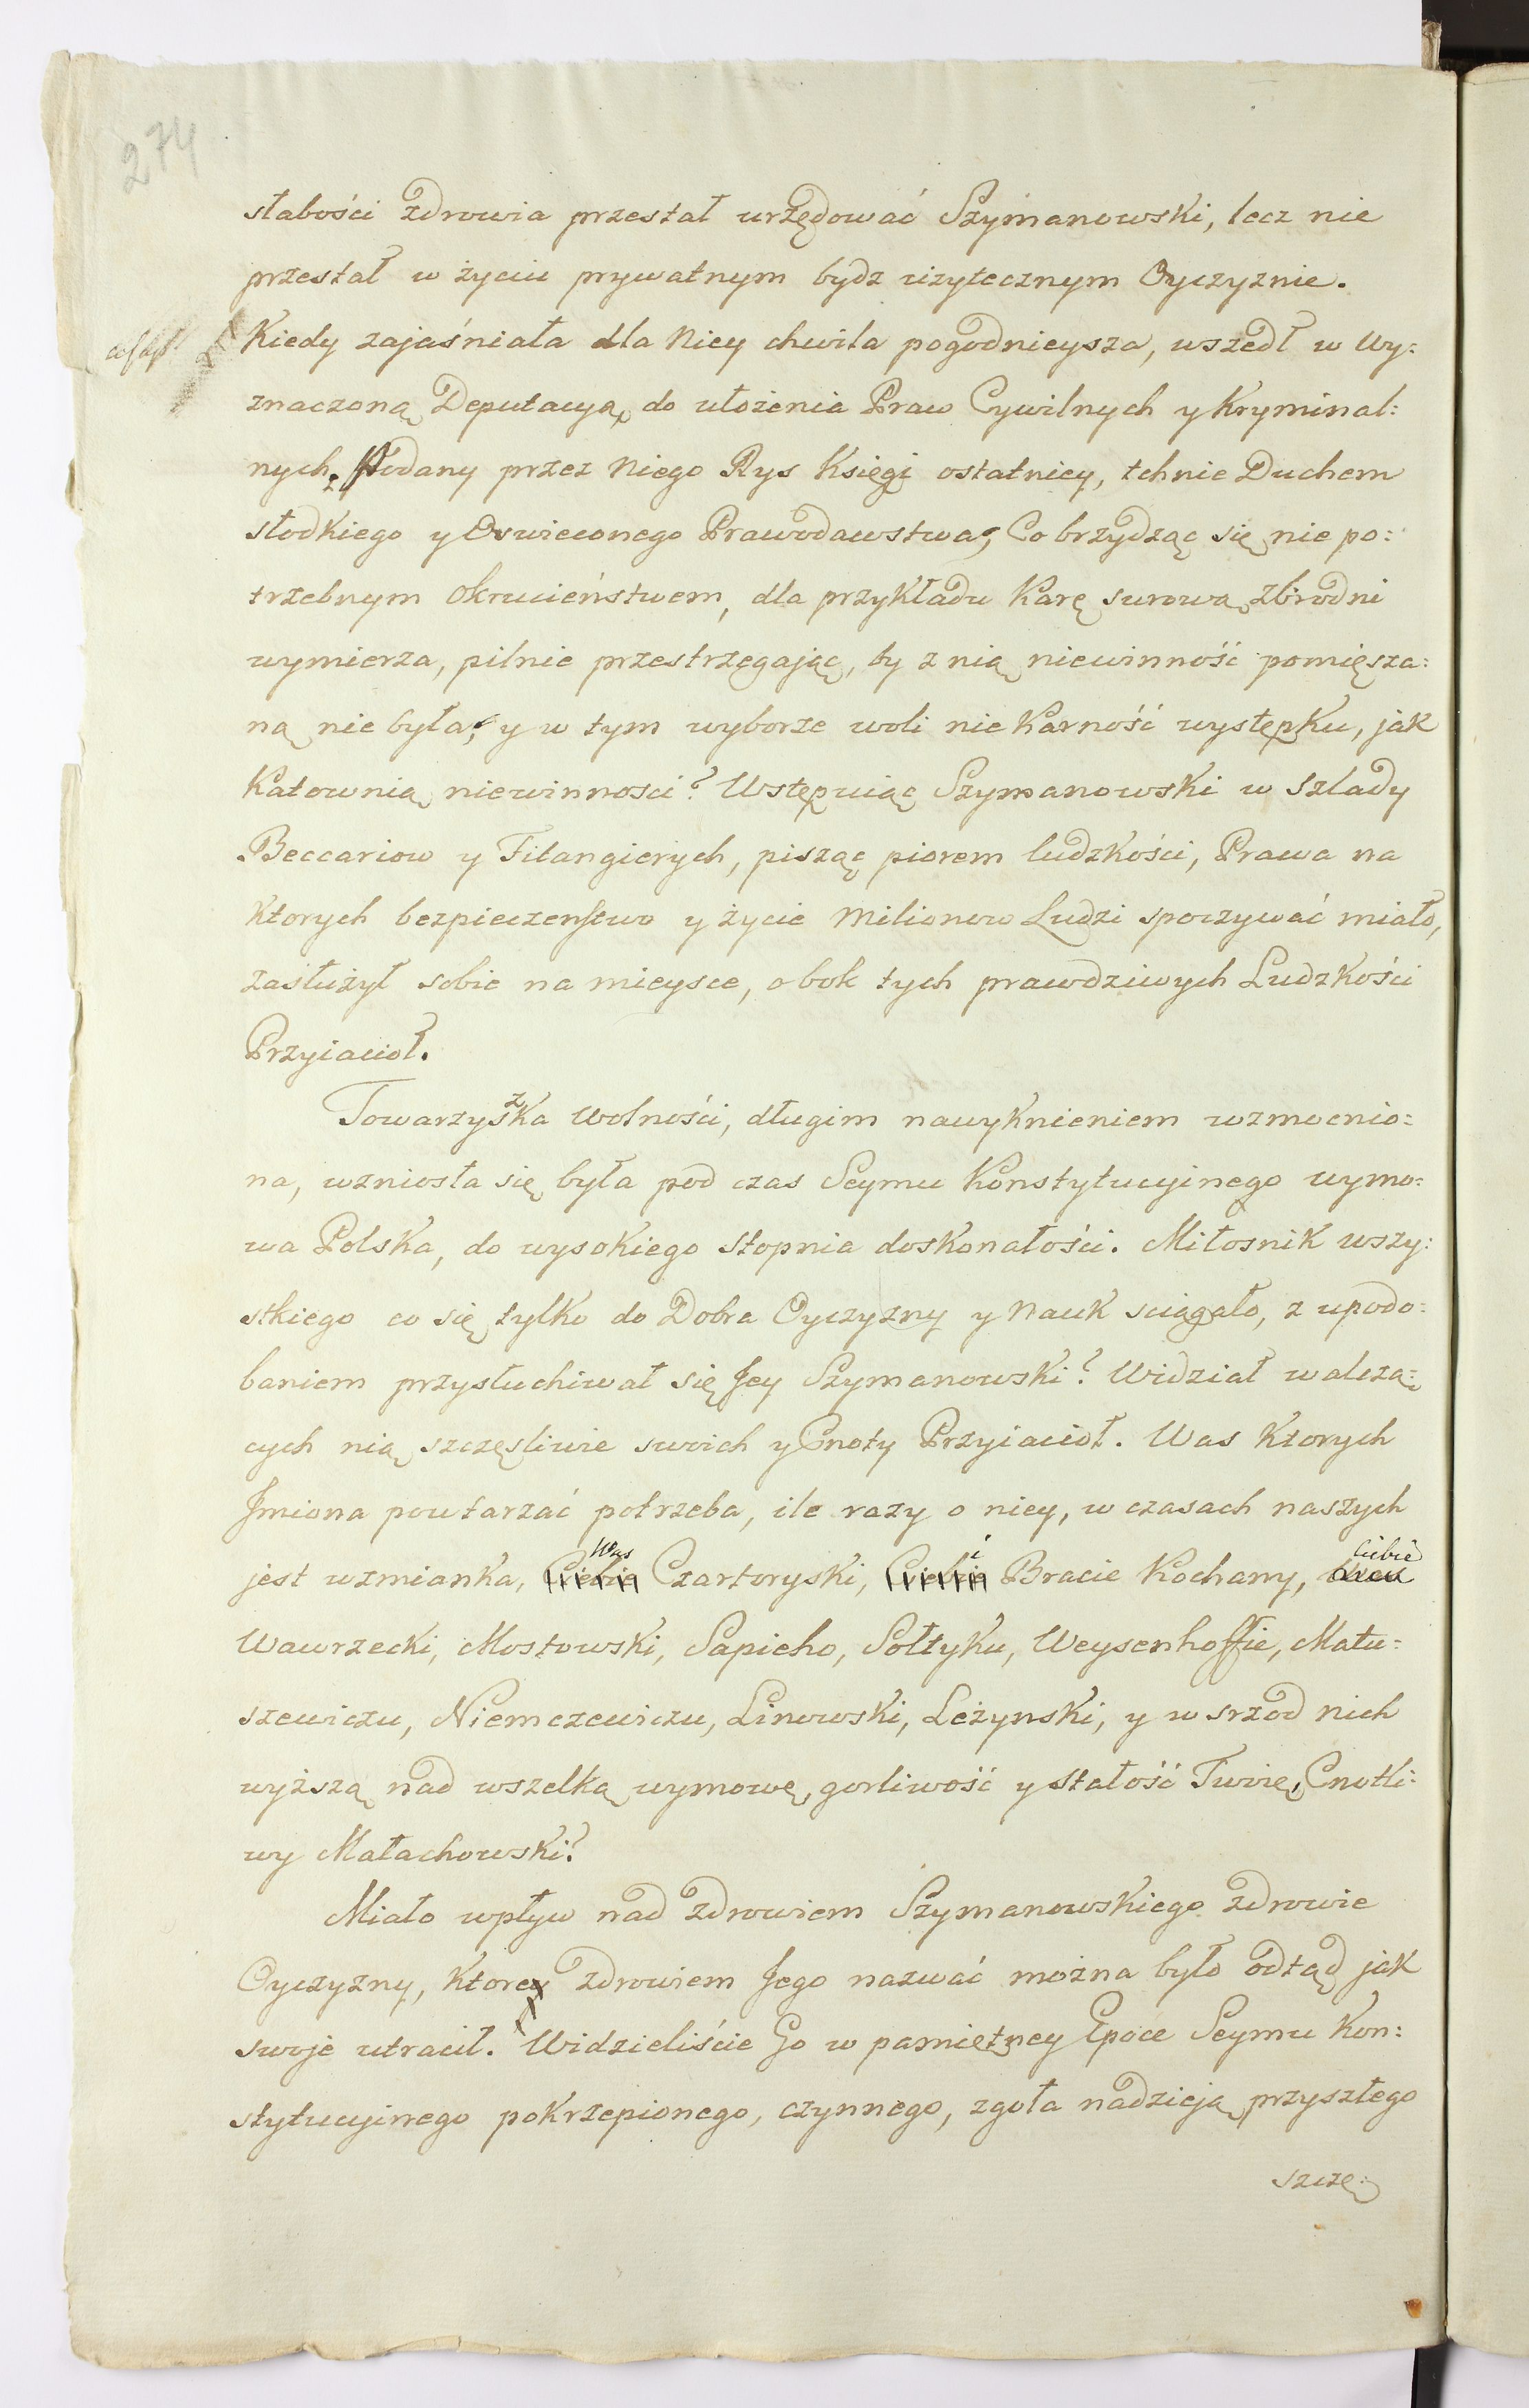 274
słabości zdrowia przestał urzędować Szymanowski, lecz nie
przestał w życiu prywatnym bydz użytecznym Oyczyznie.
Kiedy zajaśniała dla Niey chwila pogodnieysza, wszedł w Wy:
znaczoną Deputacyą, do ułożenia Praw Cywilnych y Kryminal:
nych. Podany przez Niego Rys Księgi ostatniey, tchnie Duchem
słodkiego y Oswieconego Prawodawstwa; Co brzydząc się nie po:
trzebnym okrucieństwem, dla przykładu Karę surową zbrodni
wymierza, pilnie przestrzegając, by z nią niewinność pomięsza:
ną nie była; y w tym wyborze woli nie Karność występku, jak
Katownią niewinnosci? Wstępuiąc Szymanowski w szlady
Beccariow y Filangierych, pisząc piorem ludzkości, Prawa na
Ktorych bezpieczenstwo y życie Milionow Ludzi spoczywać miało,
zasłużył sobie na mieysce, obok tych prawdziwych Ludzkości
Przyiacioł.
Towarzyszka Wolności, długim nawyknieniem wzmocnio:
na, wzniosła się była pod czas Seymu Konstytucyinego wymo:
wa Polska, do wysokiego stopnia doskonałości. Miłosnik wszy:
stkiego co się tylko do Dobra Oyczyzny y Nauk sciągało, z upodo:
baniem przysłuchiwał się Jey Szymanowski? Widział walczą:
cych nią szczęsliwie swoich y Cnoty Przyiacioł. Was Ktorych
Jmiona powtarzać potrzeba, ile razy o niey, w czasach naszych
Was i Ciebie
jest wzmianka, Ciebie Czartoryski, Ciebie Bracie Kochany,
Wawrzecki, Mostowski, Sapieho, Sołtyku, Weysenhoffie, Matu:
szewiczu, Niemczewiczu, Linowski, Leżynski, y w srzod nich
wyższą nad wszelką wymowę, gorliwość y stałość Twoię, Cnotli:
wy Małachowski?
Miało wpływ nad zdrowiem Szymanowskiego zdrowie
Oyczyzny, Ktore zdrowiem Jego nazwać można było odtąd jak
swoje utracił. Widzieliście Go w pamiętney Epoce Seymu Kon:
stytucyinego pokrzepionego, czynnego, zgoła nadzieją przyszłego
szczę: